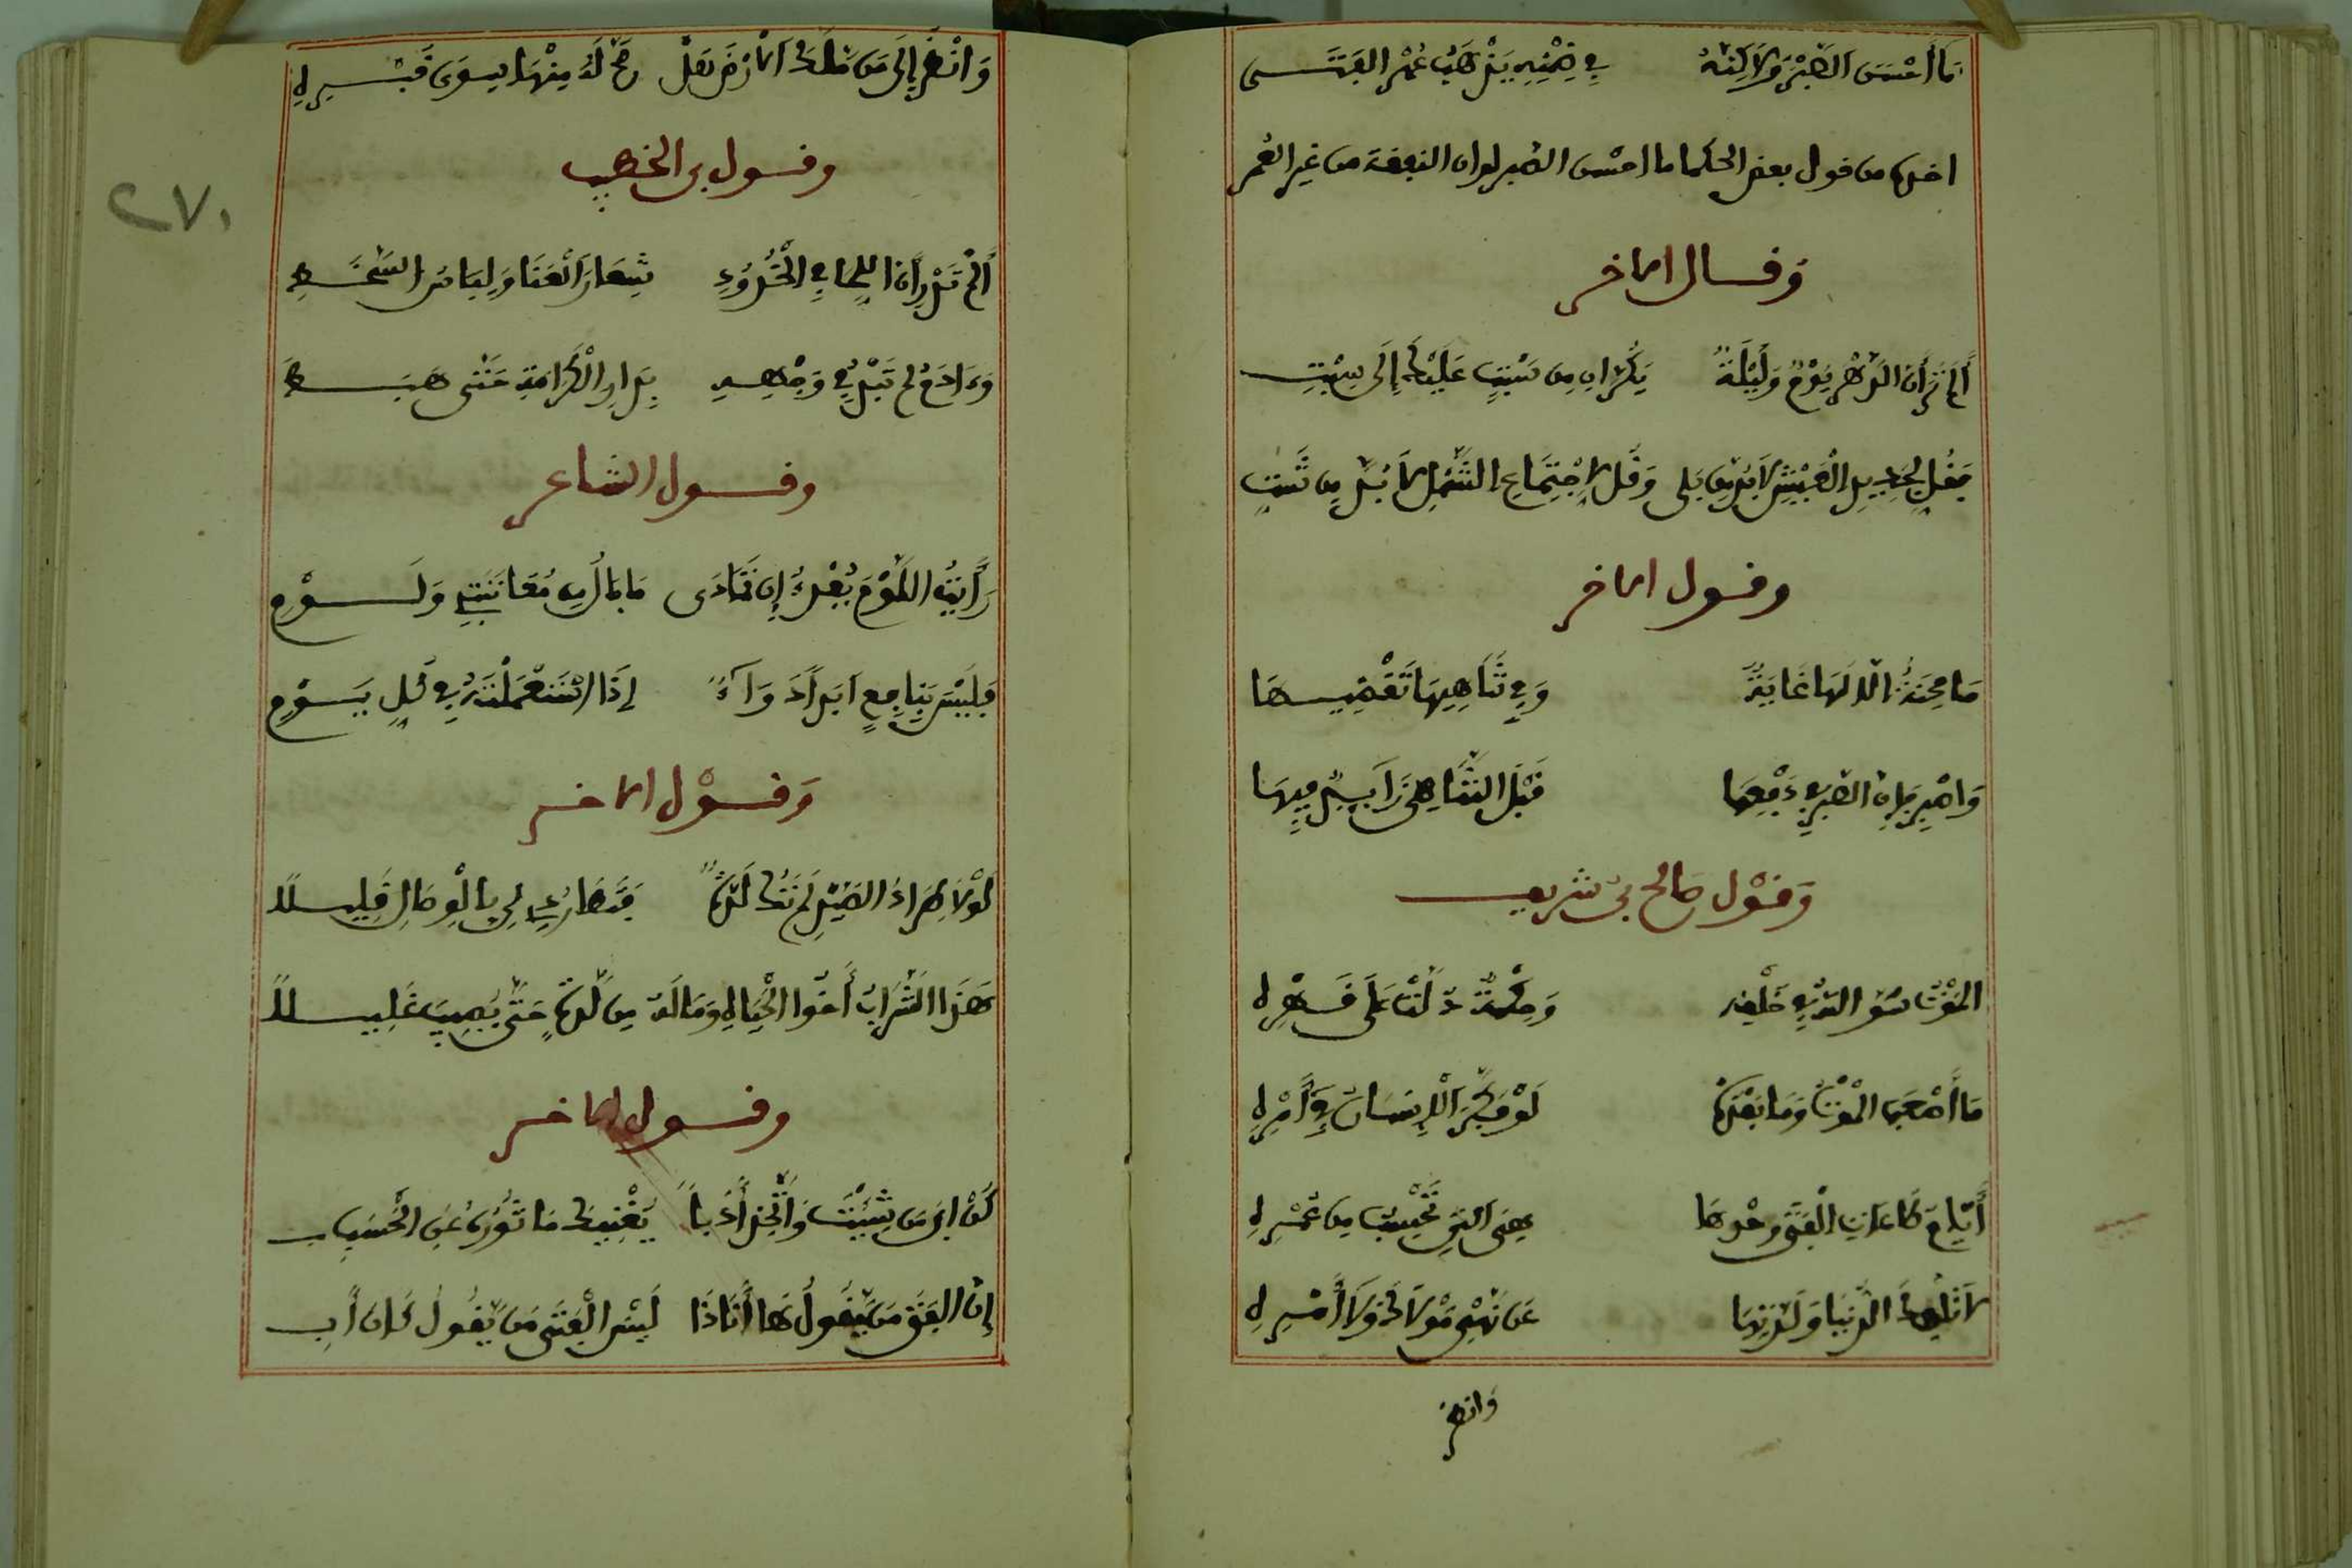 مَا أَحْسَنَ الصَّبْرَ وَلَاكِنَّهُ في ضِمْنِهِ يَذْهَبُ عُمْرُ الفَتَــى
اخذه من قول بعض الحكما ما احسن الصبر لولا ان النفقة من غير العمر
وَقـال الاخر
أَلَمْ تَرَ أَنَّ الدَّهْرَ يَوْمٌ وَلَيْلَةٌ يَكُرَّانِ مِن سَبْتٍ عَلَيْكَ إِلَى سَبْتِ
فَقُل لِجَدِيدِ الْعَيْشِ لَا بُدَّ مِن بَلى وَقُل لِاجْتِمَاعِ الشَّمْلِ لَا بُدَّ مِن شَتِّ
وقـول الاخر
مَا مِحْنَةٌ الَّا لَهَا غَايَةٌ وَفِي تَنَاهِيهَا تَقَضِّيـهَا
وَاصْبِر فَإِنَّ الصَّبْرَ في دَفْعِهَا قَبْلَ التَّنَاهِي زَايِدٌ فِيهَا
وَقَوْل صالح بن شريف
المَوْتُ سِرُّ اللَّهِ في خَلْقِهِ وَحِكْمَةٌ دَلَّتْ عَلَى قَـهْرِهِ
مَا أَصْعَبَ الْمَوْتَ وَمَا بَعْدَهُ لَوْ فَكَّرَ الْإِنسَانُ فِي أَمْرِهِ
أَيَّامُ طَاعَاتِ الْفَتَى وَحْدَهَا هِيَ الَّتِي تُحْسَبُ مِن عُمْـرِهِ
لَا تُلْهِكَ الدُّنْيَا وَلَذَّتُهَا عَن نَهْيِ مَوْلَاكَ وَلَا أَمْـرِهِ
وانظر
وَانْظُرْ إِلَى مَن مَلَكَ الْأَرْضَ هَلْ صَحَّ لَهُ مِنْهَا سِوَى قَبْـرِهِ
وقـول بن الخطيب
أَلَمْ تَدْرِ أَنَّ اللِّحَا فِي الْخُدُودِ شِعَارُ الْعَنَا وَلِبَاسُ السَّخَـطِ
وَءَادَمُ لم تَبْدُ في وَجْهِهِ بِدَارِ الْكَرَامَةِ حَتَّى هَبَـطَ
وقـول الشاعر
رَأَيْتُ اللَّوْمَ يُغْرِي إِن تَمَادَى مَا بَالُكَ مُعَاتَبَتِي وَلَـوْمِ
فَلَيْسَ بِنَافِعٍ ابَداً دَوَاءٌ إِذَا اسْتَعْمَلْتَهُ في كُلِّ يَـوْمِ
وَقـوْل الاخر
لَوْلَا طِرَادُ الصَّيْدِ لَمْ تَكُ لَذَّةٌ فَتَطَارَدِي لِي بِالْوِصَالِ قَلِيـلاً
هَذَا الشَّرَابُ أَخُو الْحَيَاةِ وَمَا لَهُ مِن لَذَّةٍ حَتَّى يُصِيبَ غَلِيـلاً
وقـول الاخر
كُنْ ابْنَ مَن شِئْتَ وَاتَّخِذْ أَدَباً يُغْنِيكَ مَأْثُورُهُ عَنِ الْحَسَبِ
إِنَّ الفَتَى مَن يَّقُولُ هَا أَنَا ذَا لَيْسَ الْفَتَى مَن يَّقُولُ كَانَ أَبِ
٢٧٠